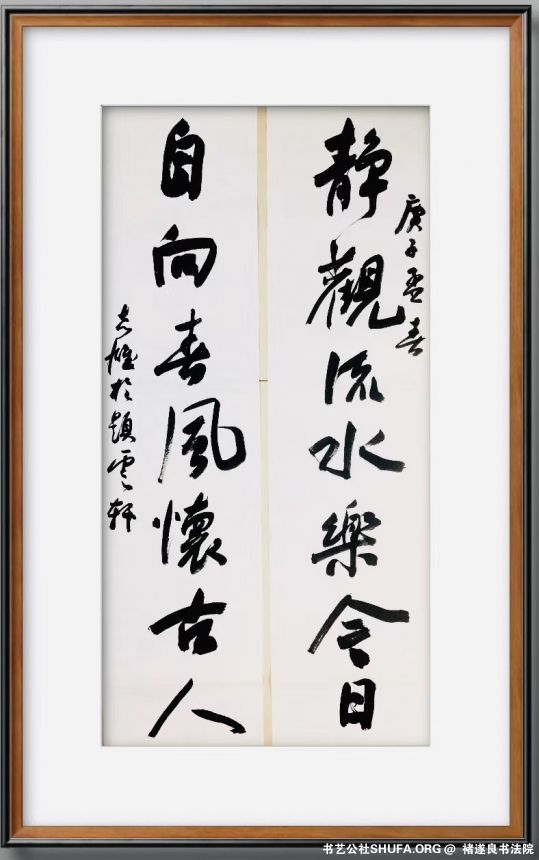 庚子孟春
静觀流水樂今日
自向春風懷古人
於韻雲軒
书艺公社SHUFA.ORG @ 褚遂良书法院